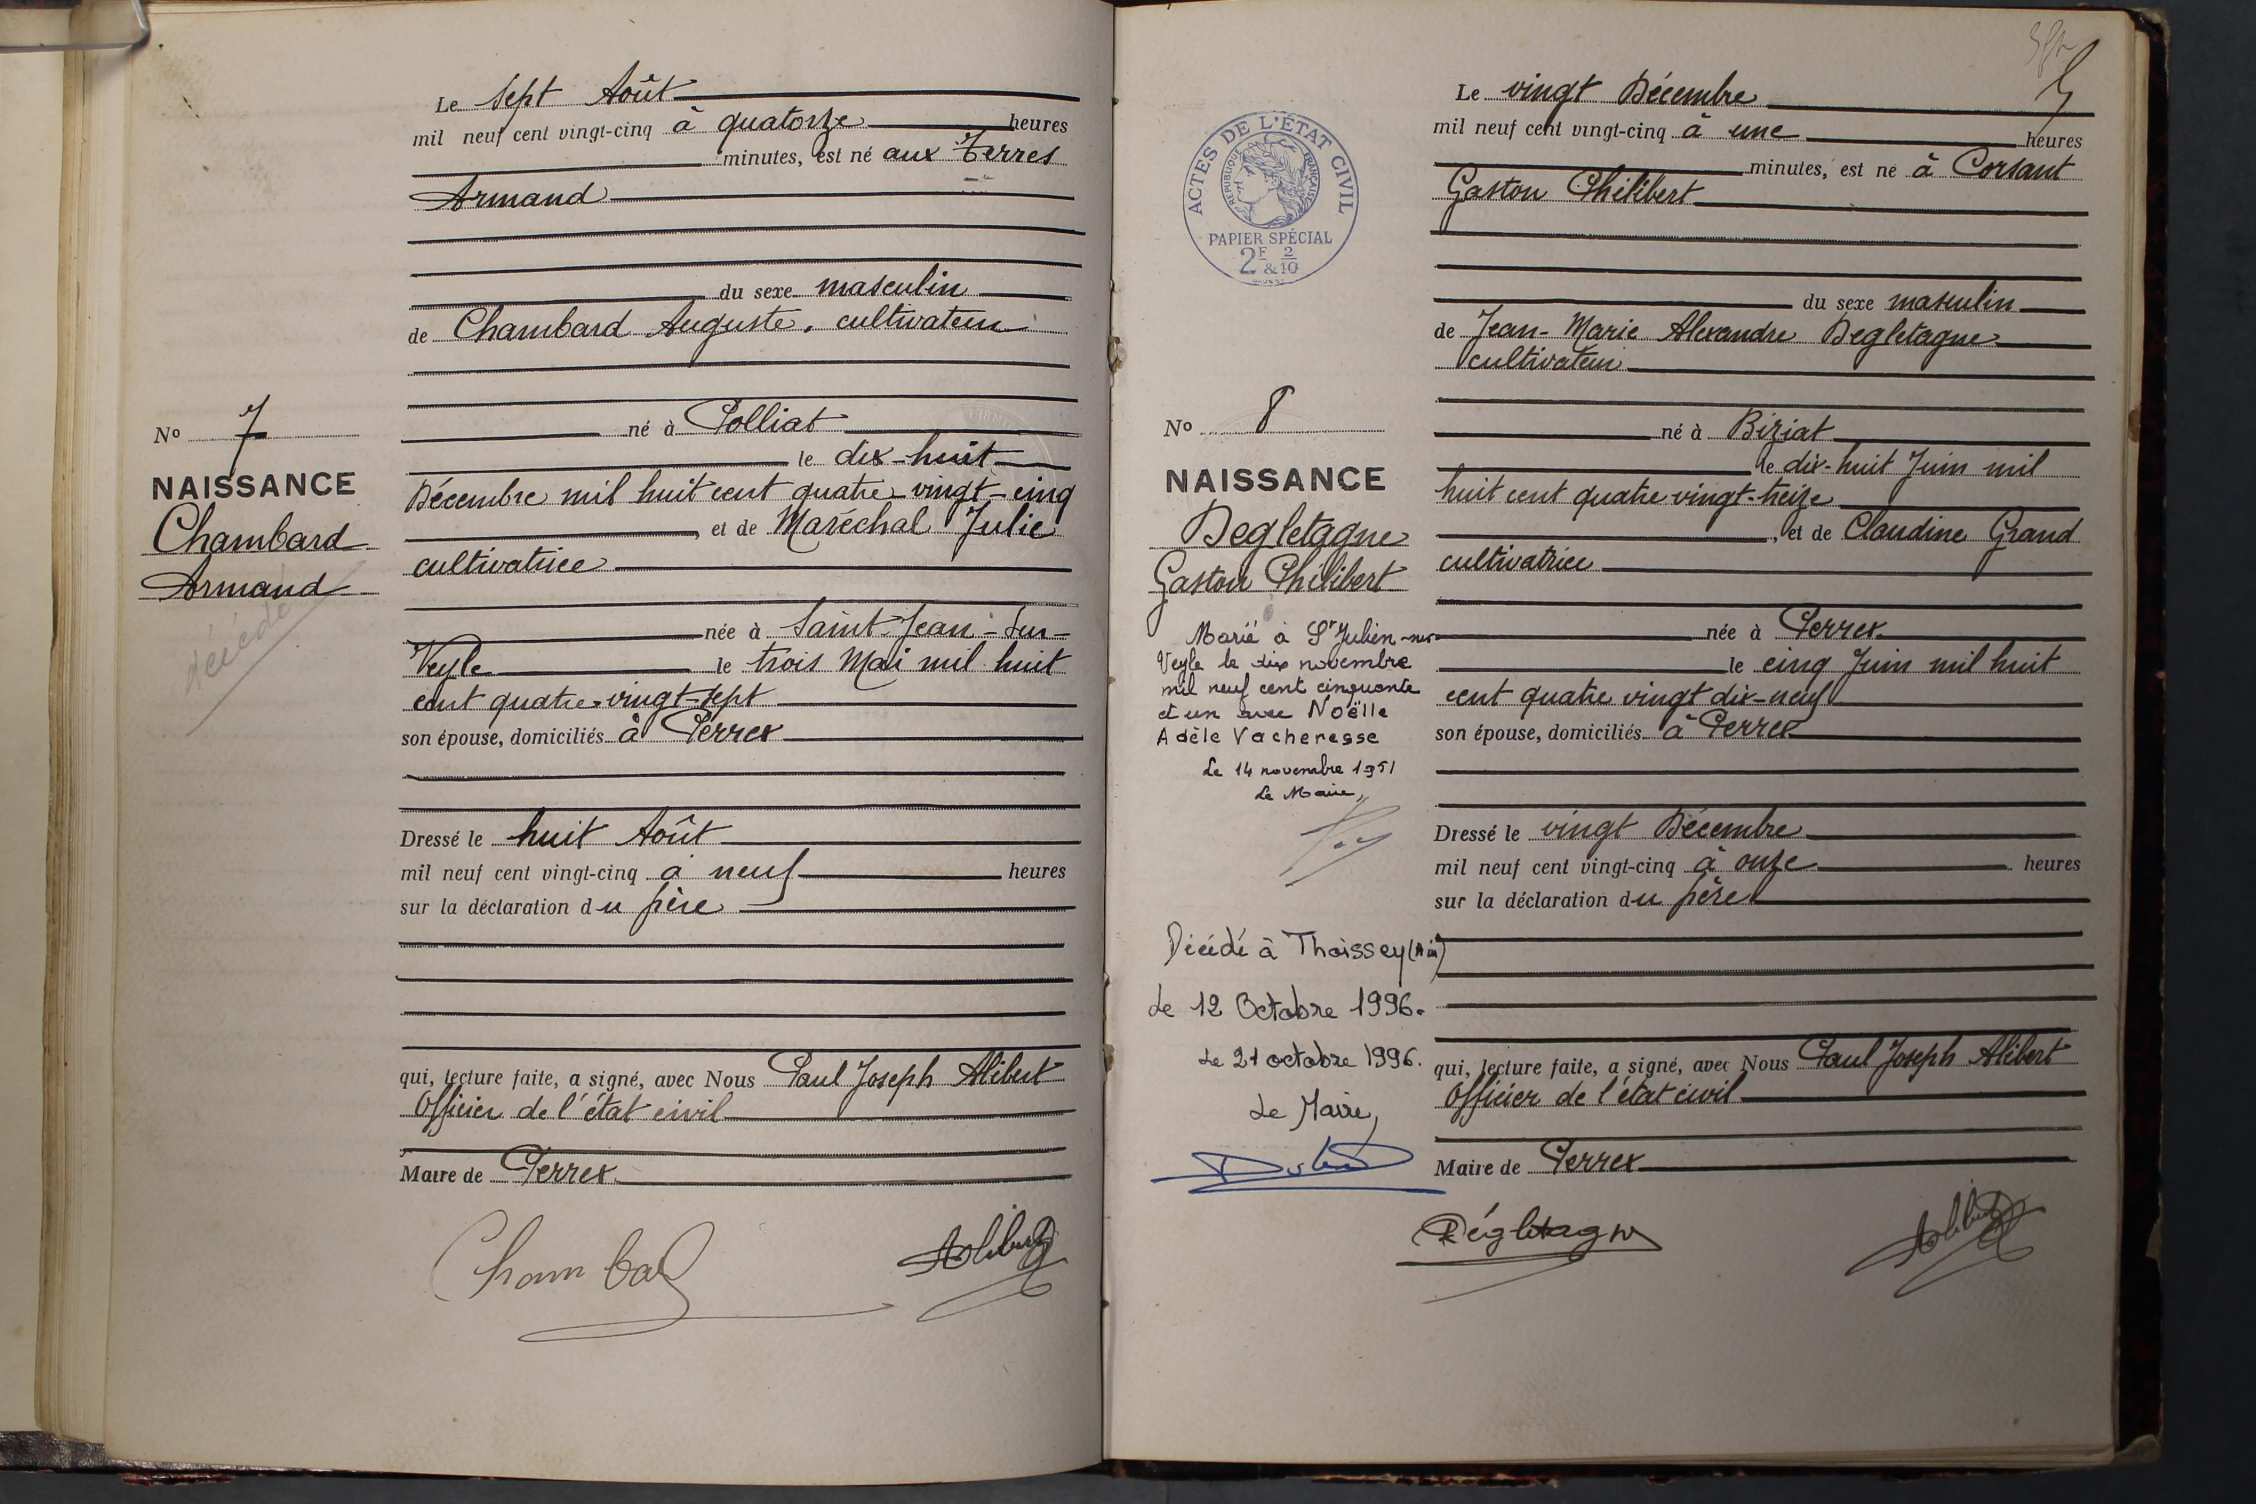 Le sept Août
mil neuf cent vingt-cinq à quatorze heures
minutes, est né aux Terres
Armand
du sexe masculin
de Chambard Auguste, cultivateur
né à Polliat
le dix-huit
Décembre mil huit cent quatre-vingt-cinq
, et de Maréchal Julie
cultivatrice
née à Saint-Jean-sur-
Veyle le trois Mai mil huit
cent quatre-vingt-sept
son épouse, domiciliés à Perrex
Dressé le huit Août
mil neuf cent vingt-cinq à neuf heures
sur la déclaration du père
qui, lecture faite, a signé, avec Nous Paul Joseph Alibert
Officier de l'état civil
Maire de Perrex
Chambard
Alibert
No 7
NAISSANCE
Chambard
Armand
décédé
ACTES DE L'ÉTAT CIVIL
RÉPUBLIQUE FRANÇAISE
PAPIER SPÉCIAL
2F & 2/10
5
Le vingt Décembre
mil neuf cent vingt-cinq à une heures
minutes, est né à Corsant
Gaston Philibert
du sexe masculin
de Jean-Marie Alexandre Degletagne
cultivateur
né à Biziat
le dix-huit Juin mil
huit cent quatre vingt-treize
, et de Claudine Grand
cultivatrice
née à Perrex
le cinq Juin mil huit
cent quatre vingt dix-neuf
son épouse, domiciliés à Perrex
Dressé le vingt Décembre
mil neuf cent vingt-cinq à onze heures
sur la déclaration du père
qui, lecture faite, a signé, avec Nous Paul Joseph Alibert
Officier de l'état civil
Maire de Perrex
Dégletagne
Alibert
No 8
NAISSANCE
Degletagne
Gaston Philibert
Marié à St Julien-sur-
Veyle le dix novembre
mil neuf cent cinquante
et un avec Noëlle
Adèle Vacheresse
Le 14 novembre 1951
Le Maire,
Décédé à Thoissey (Ain)
le 12 Octobre 1996.
Le 21 octobre 1996.
Le Maire,